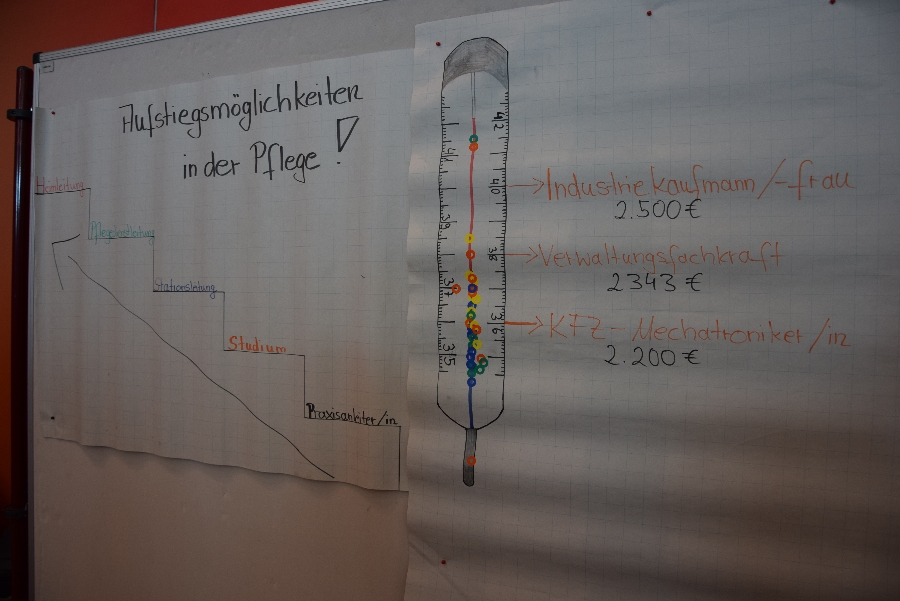 Aufstiegsmöglichkeiten
in der Pflege!
Heimleitung
Pflegedienstleitung
Stationsleitung
Studium
Praxisanleiter/in
42
41
40
39
38
37
36
35
Industriekaufmann/-frau
2.500€
Verwaltungsfachkraft
2343 €
KFZ-Mechatroniker/in
2.200 €